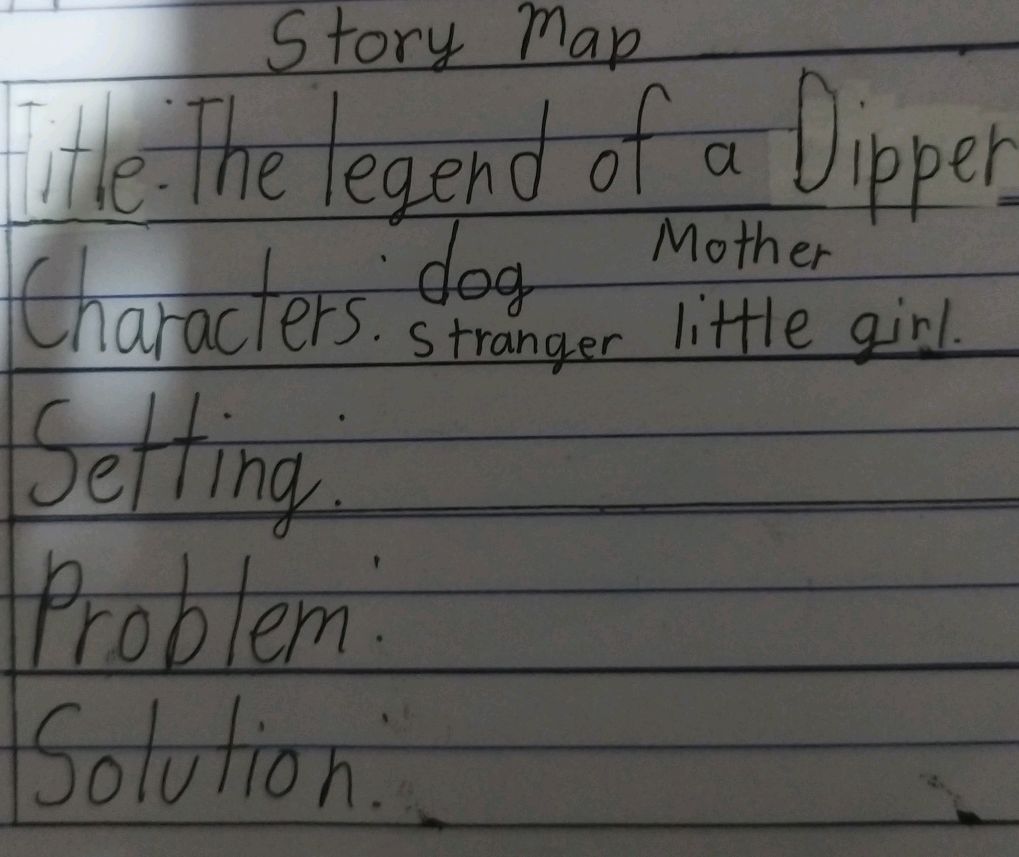 Story Map
Title: The legend of a Dipper
Characters: dog Mother
stranger little girl.
Setting:
Problem:
Solution: